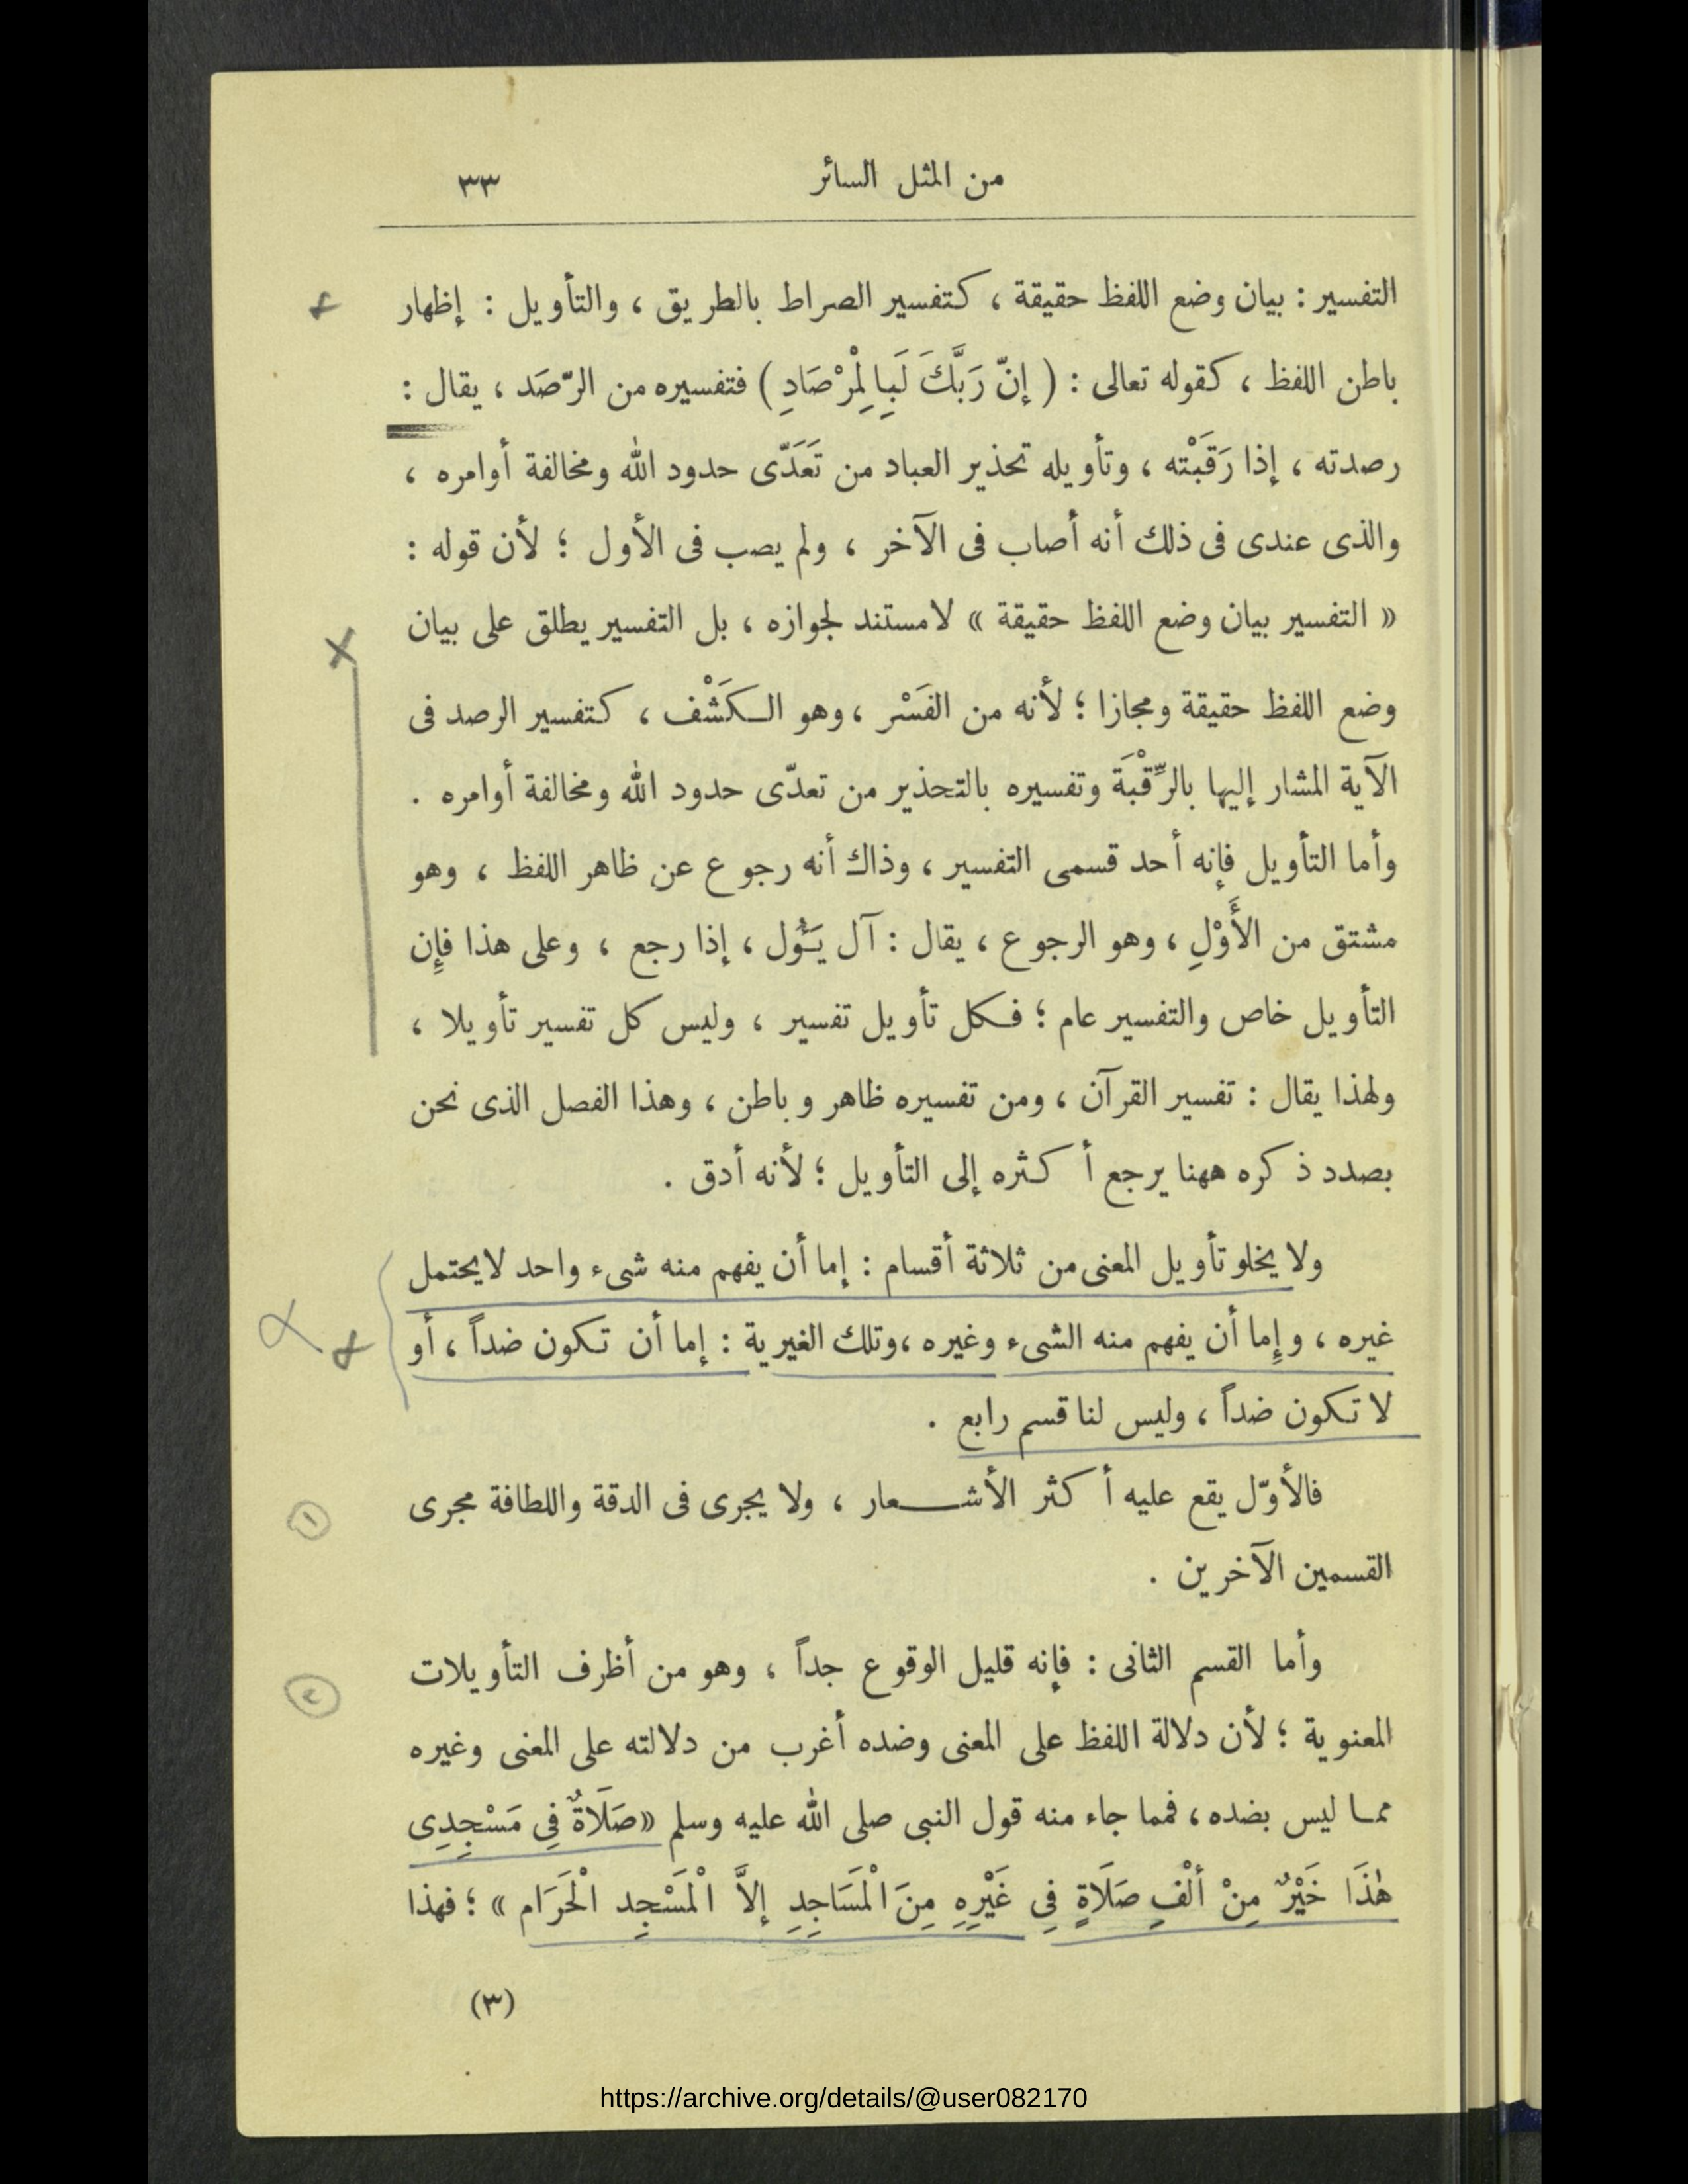 من المثل السائر ٣٣
التفسير : بيان وضع اللفظ حقيقة ، كتفسير الصراط بالطريق ، والتأويل : إظهار
باطن اللفظ ، كقوله تعالى : ( إنّ رَبَّكَ لَبِالِمْرْصَادِ ) فتفسيره من الرّصَد ، يقال :
رصدته ، إذا رَقَبْته ، وتأويله تحذير العباد من تَعَدّى حدود الله ومخالفة أوامره ،
والذى عندى فى ذلك أنه أصاب فى الآخر ، ولم يصب فى الأول ؛ لأن قوله :
« التفسير بيان وضع اللفظ حقيقة » لا مستند لجوازه ، بل التفسير يطلق على بيان
وضع اللفظ حقيقة ومجازا ؛ لأنه من الفَسْر ، وهو الكَشْف ، كتفسير الرصد فى
الآية المشار إليها بالرِّقْبَة وتفسيره بالتحذير من تعدّى حدود الله ومخالفة أوامره .
وأما التأويل فإنه أحد قسمى التفسير ، وذاك أنه رجوع عن ظاهر اللفظ ، وهو
مشتق من الأَوْلِ ، وهو الرجوع ، يقال : آل يَؤُول ، إذا رجع ، وعلى هذا فإِن
التأويل خاص والتفسير عام ؛ فكل تأويل تفسير ، وليس كل تفسير تأويلا ،
ولهذا يقال : تفسير القرآن ، ومن تفسيره ظاهر وباطن ، وهذا الفصل الذى نحن
بصدد ذكره ههنا يرجع أكثره إلى التأويل ؛ لأنه أدق .
ولا يخلو تأويل المعنى من ثلاثة أقسام : إما أن يفهم منه شىء واحد لا يحتمل
غيره ، وإِما أن يفهم منه الشىء وغيره ، وتلك الغيرية : إما أن تكون ضداً ، أو
لا تكون ضداً ، وليس لنا قسم رابع .
فالأوّل يقع عليه أكثر الأشعار ، ولا يجرى فى الدقة واللطافة مجرى
١
القسمين الآخرين .
وأما القسم الثانى : فإنه قليل الوقوع جداً ، وهو من أظرف التأويلات
٢
المعنوية ؛ لأن دلالة اللفظ على المعنى وضده أغرب من دلالته على المعنى وغيره
مما ليس بضده ، فمما جاء منه قول النبى صلى الله عليه وسلم « صَلَاةٌ فِى مَسْجِدِى
هٰذَا خَيْرٌ مِنْ ألْفِ صَلَاةٍ فِى غَيْرِهِ مِنَ الْمَسَاجِدِ إلاَّ الْمَسْجِد الْحَرَام » ؛ فهذا
(٣)
https://archive.org/details/@user082170